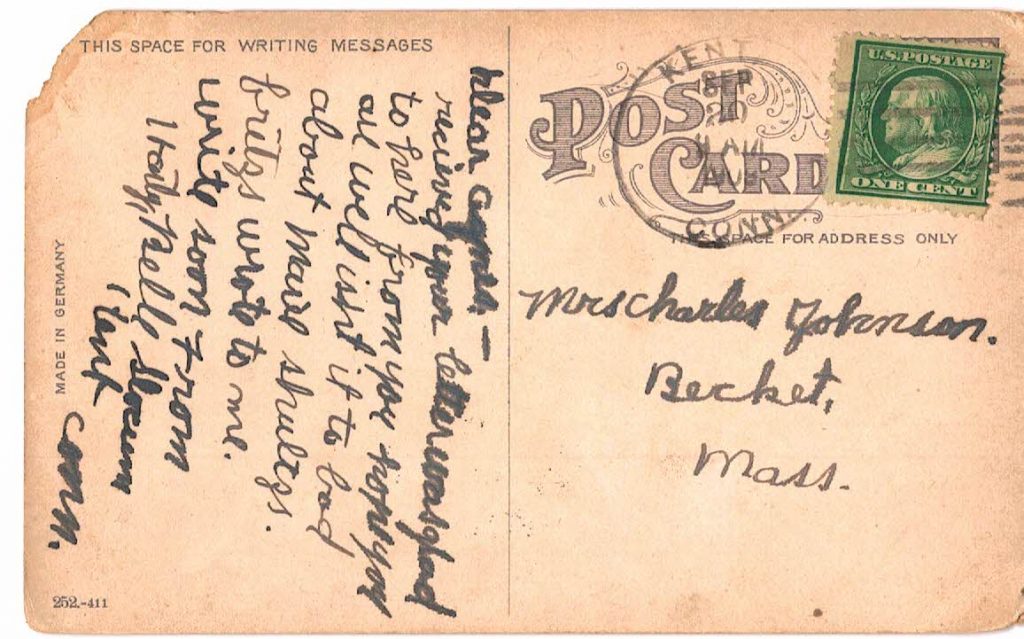 THIS SPACE FOR WRITING MESSAGES
Dear Agnes –
recived your letter was glad
to here from you sorry you
all well isnt it to bad
about shultzs.
wrote to me.
write soon from
Nelly Slocum
Kent
Conn.
MADE IN GERMANY
252.-411
POST
CARD
KENT
SEP
AM
CONN.
U.S. POSTAGE
ONE CENT
THIS SPACE FOR ADDRESS ONLY
Mrs Charles Johnson.
Becket,
Mass.